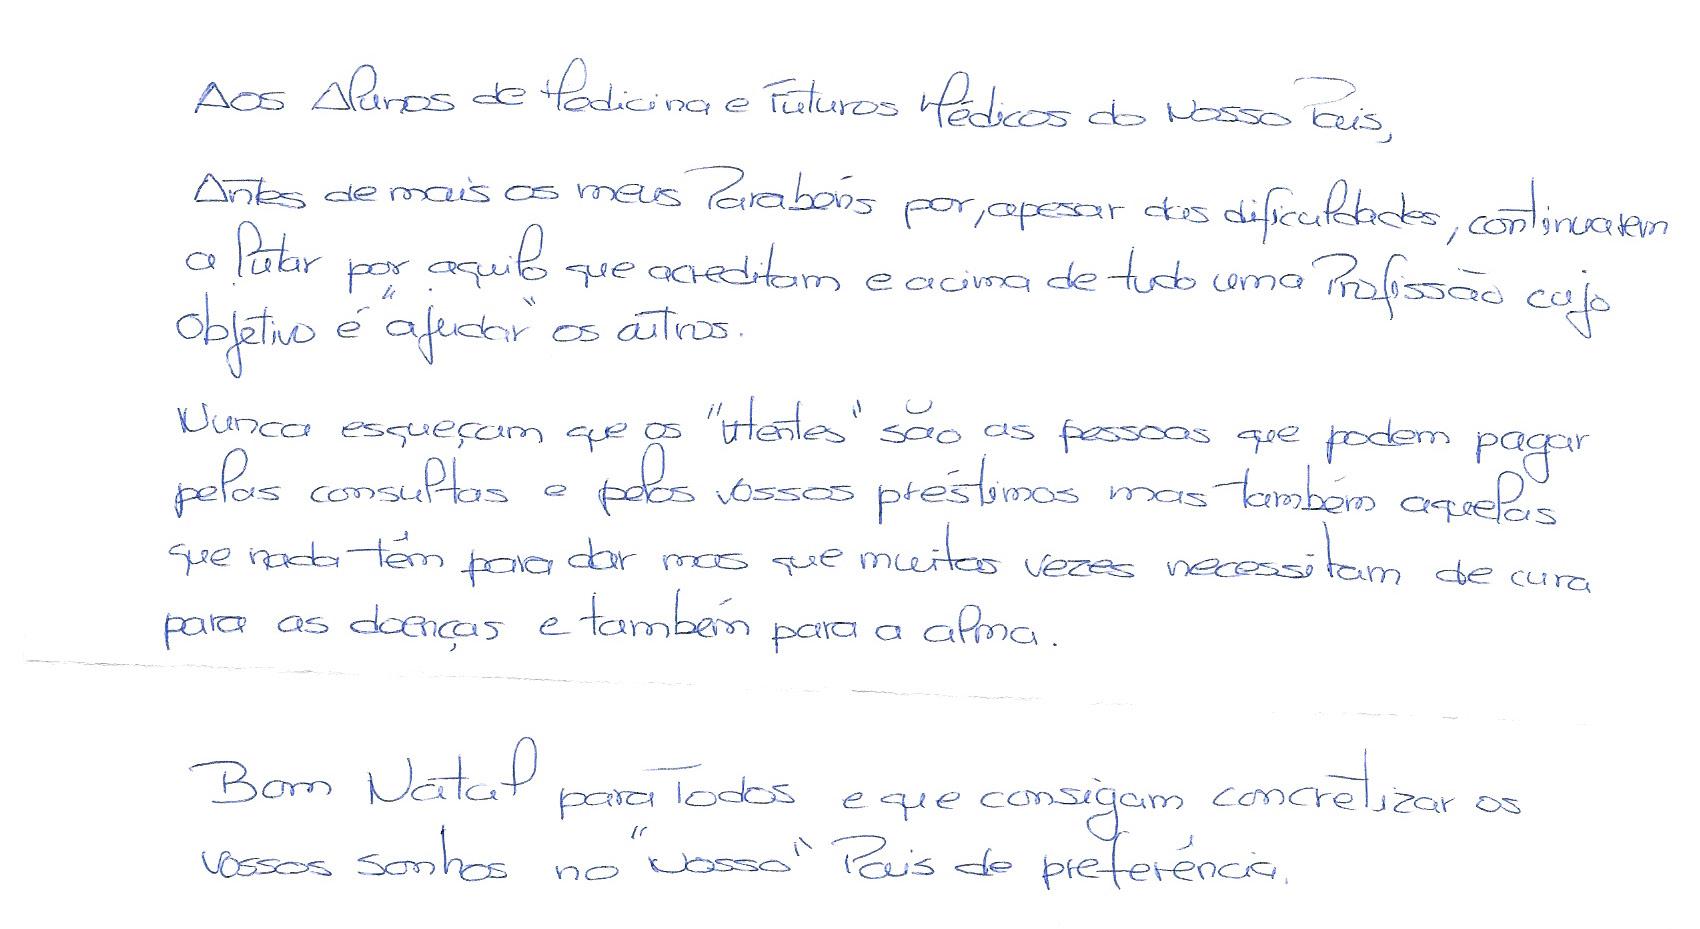 Aos Alunos de Medicina e Futuros Médicos do Nosso País,
Antes de mais os meus Parabéns por, apesar das dificuldades, continuarem
a lutar por aquilo que acreditam e acima de tudo uma Profissão cujo
objetivo é "ajudar" os outros.
Nunca esqueçam que os "utentes" são as pessoas que podem pagar
pelas consultas e pelos vossos préstimos mas também aquelas
que nada têm para dar mas que muitas vezes necessitam de cura
para as doenças e também para a alma.
Bom Natal para Todos e que consigam concretizar os
vossos sonhos no "Nosso" País de preferência.